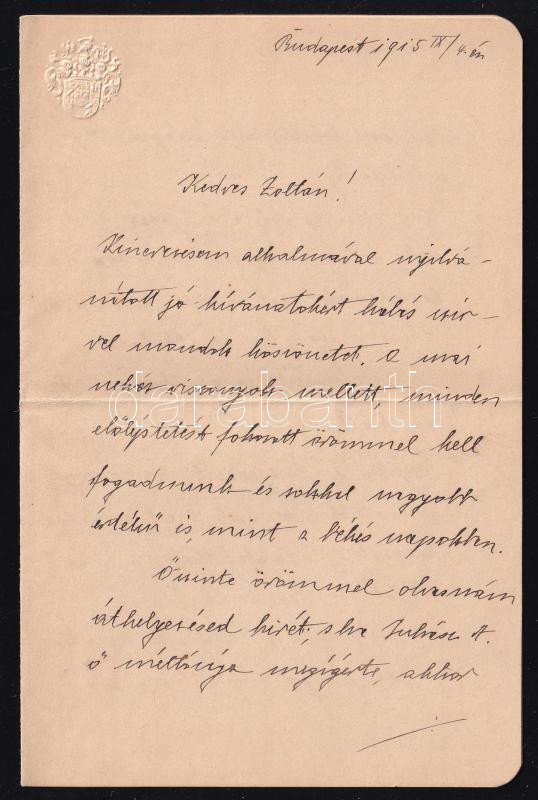 Budapest 1915 IX/4-én
Kedves Zoltán!
Kinevezésem alkalmával nyilvá-
nított jó kívánatokért hálás szív-
vel mondok köszönetet. A mai
nehéz viszonyok mellett, minden
előléptetést fokozott örömmel kell
fogadnunk és sokkal nagyobb
értékű is, mint a békés napokban.
darabanth
Őszinte örömmel olvasnám
áthelyezésed hírét, s ha Juhász A.
ő méltósága megígérte, akkor